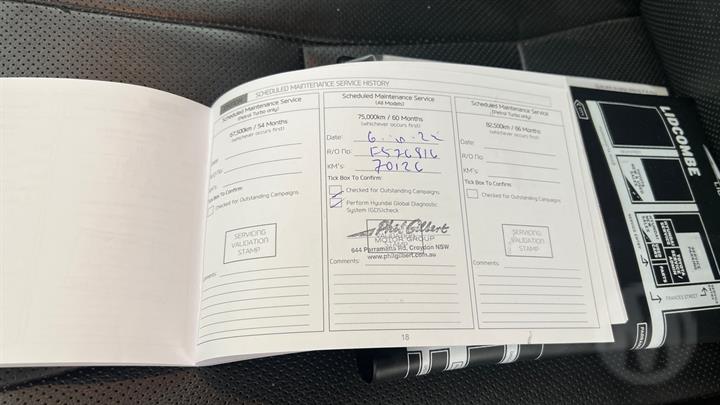 SCHEDULED MAINTENANCE SERVICE HISTORY
Scheduled Maintenance Service
(Petrol Turbo only)
67,500km / 54 Months
(whichever occurs first)
Date:
R/O No:
KM's:
Tick Box To Confirm:
Checked for Outstanding Campaigns
SERVICING
VALIDATION
STAMP
Comments:
Scheduled Maintenance Service
(All Models)
75,000km / 60 Months
(whichever occurs first)
Date:
R/O No:
KM's: 70126
Tick Box To Confirm:
Checked for Outstanding Campaigns
Perform Hyundai Global Diagnostic
System (GDS)check
Phil Gilbert
MOTOR GROUP
644 Parramatta Rd, Croydon NSW
www.philgilbert.com.au
Comments:
Scheduled Maintenance Service
(Petrol Turbo only)
82,500km / 66 Months
(whichever occurs first)
Date:
R/O No:
KM's:
Tick Box To Confirm:
Checked for Outstanding Campaigns
SERVICING
VALIDATION
STAMP
Comments:
18
LIDCOMBE
FRANCES STREET